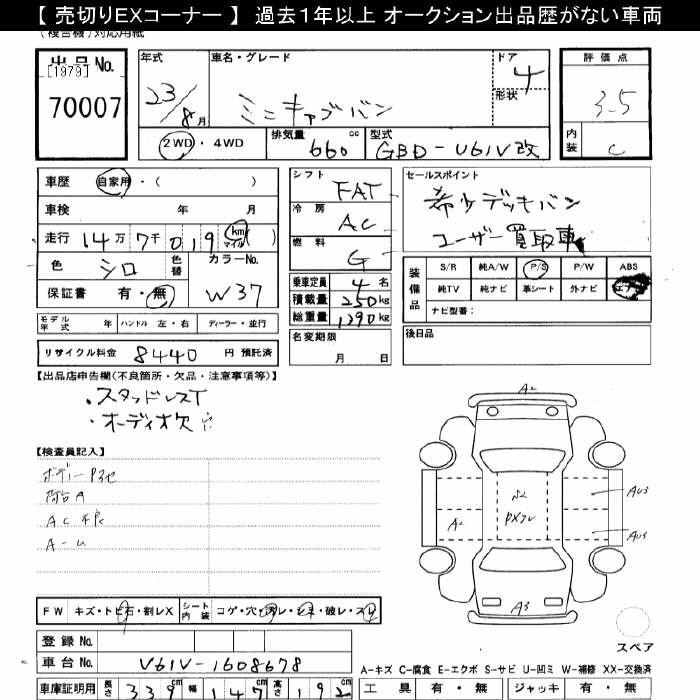 【 売切りEXコーナー 】 過去1年以上 オークション出品歴がない車両
(複合機)対応用紙
出品No.
[1979]
70007
年式
23/8月
車名・グレード
ミニキャブバン
ドア
4
形状
評価点
3.5
2WD・4WD
排気量
660
cc
型式
GBD-U61V改
内装
C
車歴
自家用・( )
シフト
FAT
セールスポイント
希少デッキバン
ユーザー買取車
車検 年 月
冷房
AC
走行 14万7千019 km マイル( )
燃料
G
色
シロ
色替
カラーNo.
W37
保証書 有・無
乗車定員 4名
積載量 250kg
総重量 1390kg
装備品
S/R 純A/W P/S P/W ABS
純TV 純ナビ 革シート 外ナビ エアB
ナビ型番:
モデル年式 年 ハンドル 左・右 ディーラー・並行
名変期限
月 日
後日品
リサイクル料金 8440 円 預託済
【出品店申告欄(不良箇所・欠品・注意事項等)】
・スタッドレスT
・オーディオ欠
A2
【検査員記入】
荷台A
AC不良
A-U
A2
S2
AU3
A3
FW キズ・トビ石・割レX
シート内装 コゲ・穴・汚レ・シミ・破レ・スレ
登録No.
スペア
車台No. V61V-1608678
A−キズ C−腐食 E−エクボ S−サビ U−凹ミ W−補修 XX−交換済
車庫証明用 長さ 339cm 幅 147cm 高さ 192cm
工具 有・無 ジャッキ 有・無